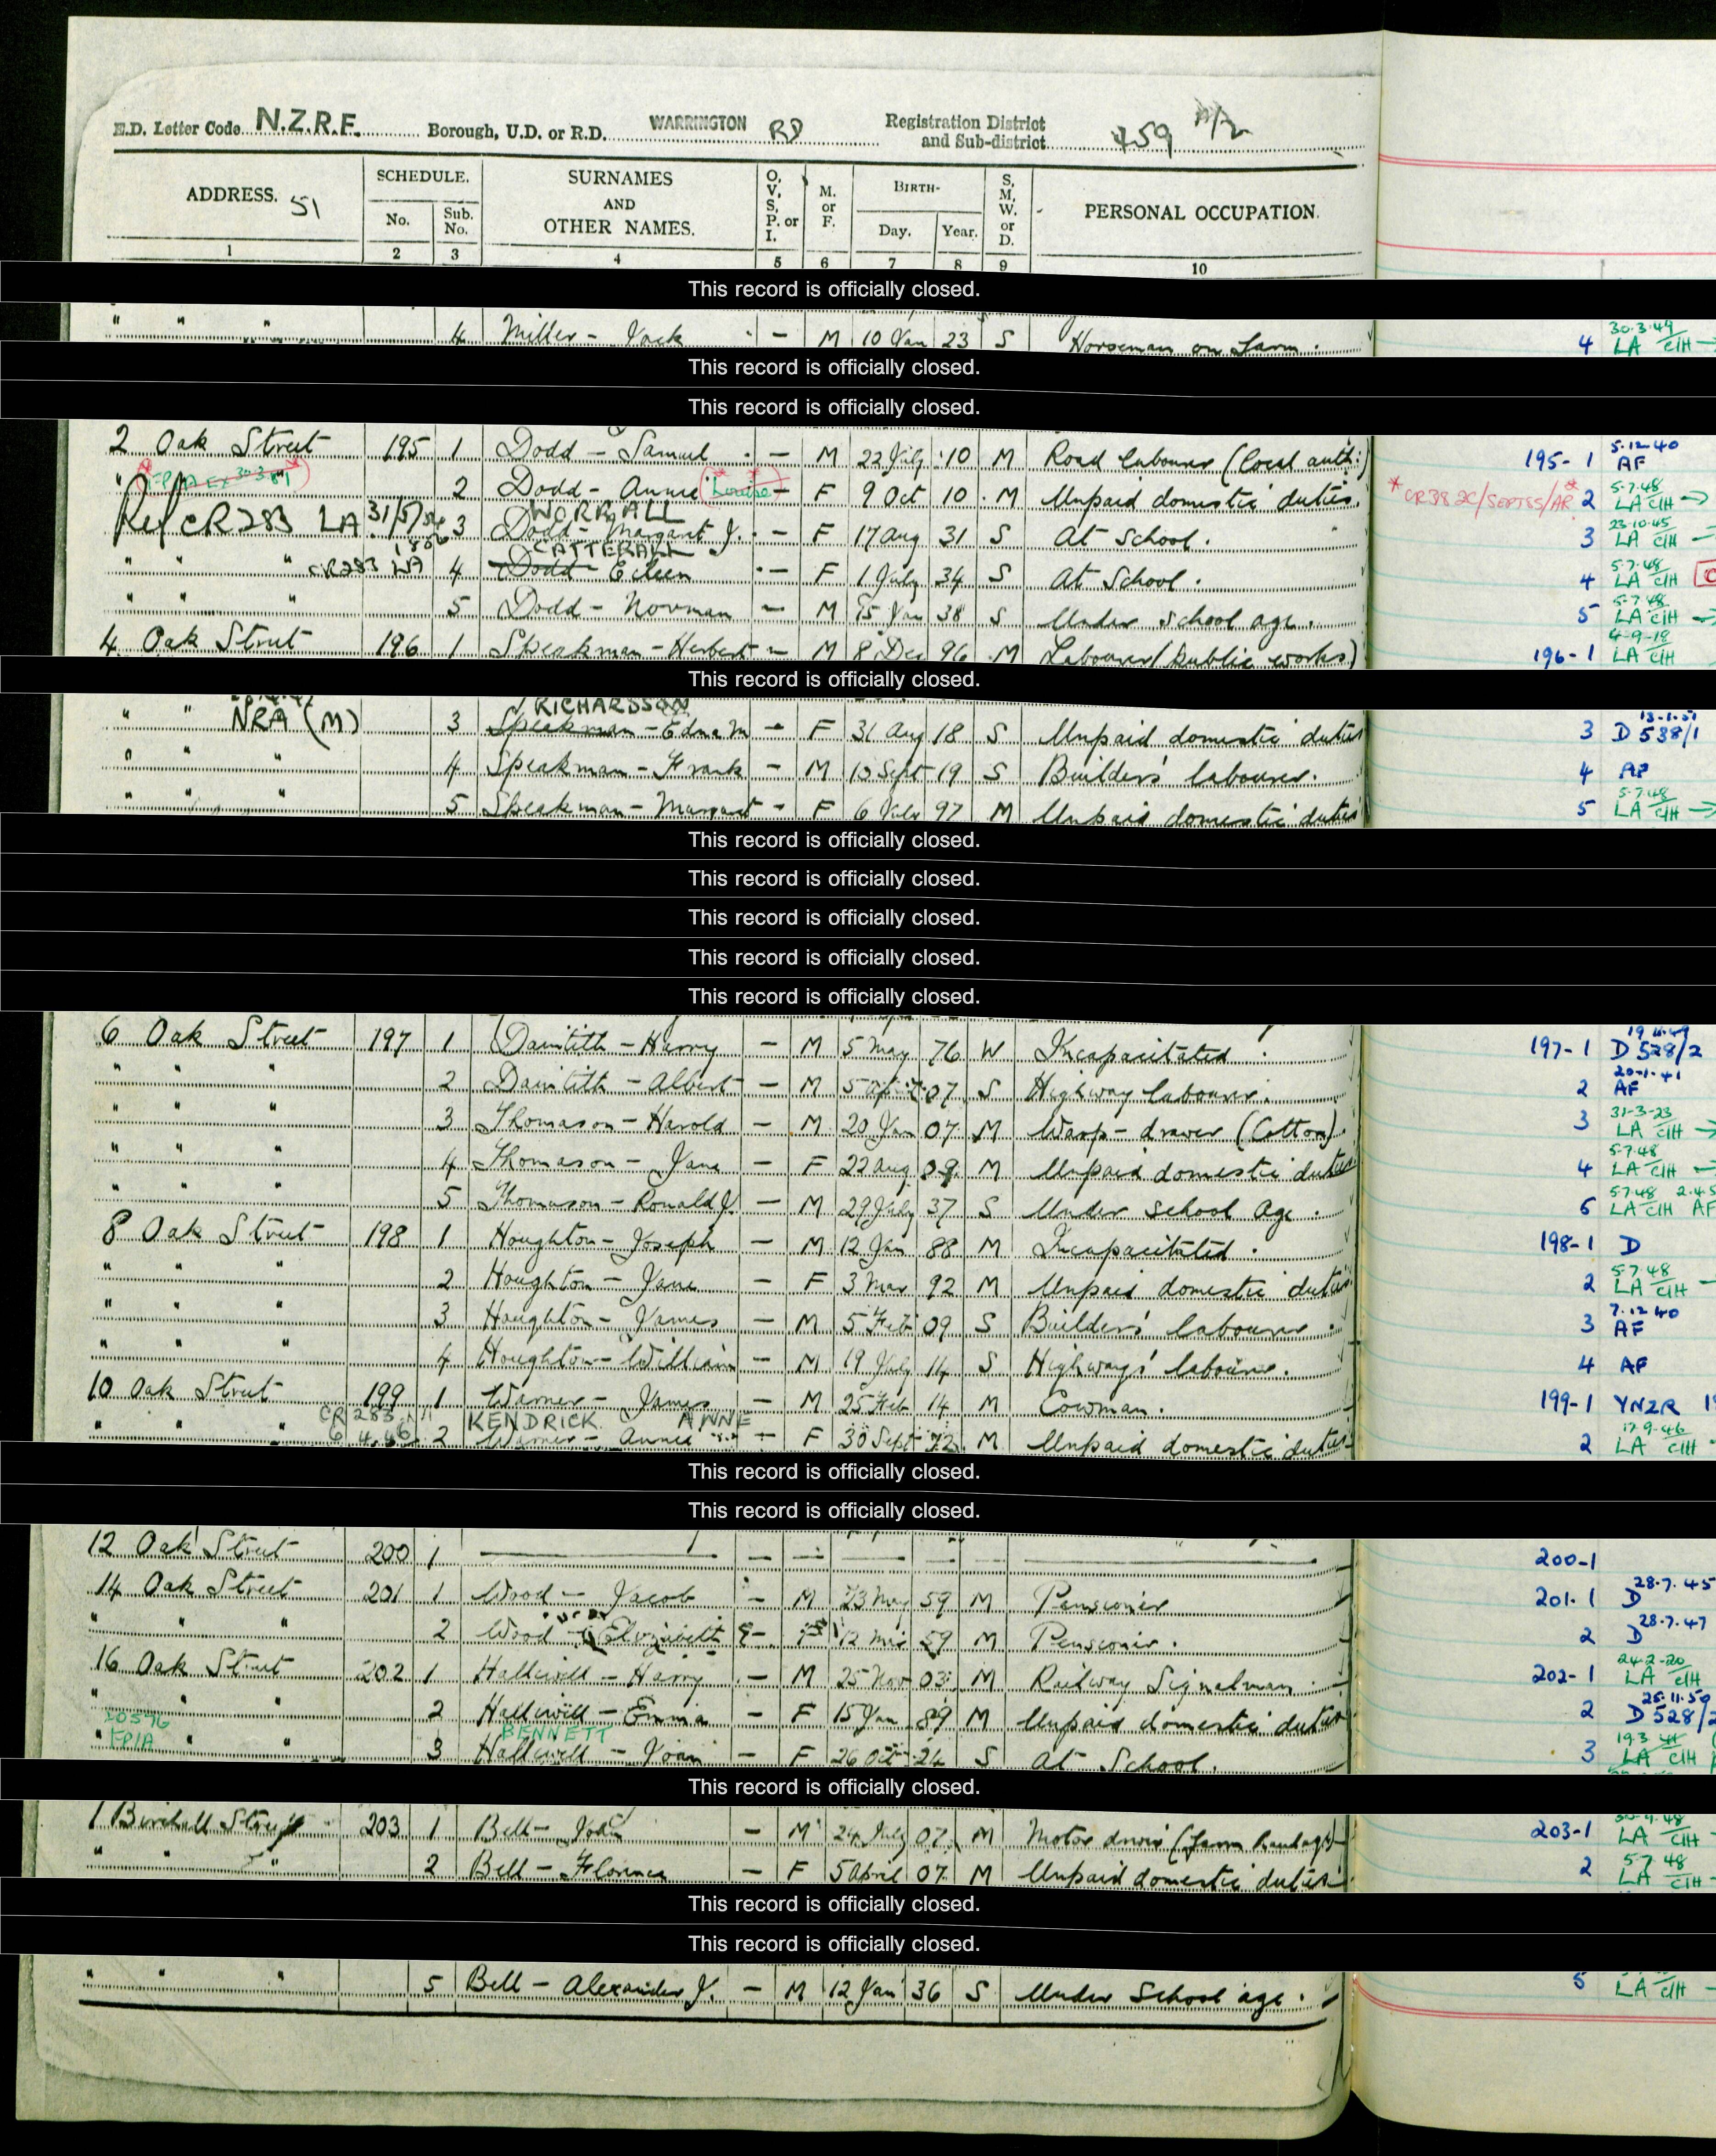 E.D. Letter Code N.Z.R.F. Borough, U.D. or R.D. WARRINGTON RD Registration District and Sub-district 459
ADDRESS. 51 SCHEDULE. No. Sub. No. SURNAMES AND OTHER NAMES. O, V, S, P. or I. M. or F. BIRTH- Day. Year. S, M, W. or D. PERSONAL OCCUPATION.
1 2 3 4 5 6 7 8 9 10
This record is officially closed.
" " " 4 Miller - Jack - M 10 Jan 23 S Horseman on Farm. 4 30.3.49 LA CIH →
This record is officially closed.
This record is officially closed.
2 Oak Street 195 1 Dodd - Samuel - M 22 July 10 M Road labourer (local auth:) 195-1 5.12.40 AF
" 2 Dodd - Annie (Louise) - F 9 Oct 10 M Unpaid domestic duties. 2 5.7.48 LA CIH →
Ref CR283 LA 31/5/54 3 Dodd - Margaret J. WORRALL - F 17 Aug 31 S At School. 3 23.10.45 LA CIH
" " " CR283 LA 4 Dodd CATTERALL - Eileen - F 1 July 34 S At School. 4 5.7.48 LA CIH
" " " 5 Dodd - Norman - M 15 Jan 38 S Under school age. 5 5.7.48 LA CIH →
4 Oak Street 196 1 Speakman - Herbert - M 8 Dec 96 M Labourer (public works) 196-1 4-9-18 LA CIH
This record is officially closed.
" " NRA (M) 3 Speakman RICHARDSON - Edna M - F 31 Aug 18 S Unpaid domestic duties 3 13-1-51 D 538/1
" " 4 Speakman - Frank - M 13 Sept 19 S Builders' labourer. 4 AF
" " " 5 Speakman - Margaret - F 6 July 97 M Unpaid domestic duties 5 5.7.48 LA CIH →
This record is officially closed.
This record is officially closed.
This record is officially closed.
This record is officially closed.
This record is officially closed.
6 Oak Street 197 1 Daintith - Harry - M 5 May 76 W Incapacitated. 197-1 D 528/2
" " " 2 Daintith - Albert - M 5 Apr 07 S Highway labourer. 2 20-1-41 AF
" " " 3 Thomason - Harold - M 20 Jan 07 M Warp-drawer (Cotton). 3 31-3-23 LA CIH →
" " " 4 Thomason - Jane - F 22 Aug 09 M Unpaid domestic duties 4 5-7-48 LA CIH →
" " " 5 Thomason - Ronald J. - M 29 July 37 S Under school age. 5.7.48 LA CIH AF
8 Oak Street 198 1 Houghton - Joseph - M 12 Jan 88 M Incapacitated. 198-1 D
" " " 2 Houghton - Jane - F 3 Mar 92 M Unpaid domestic duties 2 5.7.48 LA CIH
" " " 3 Houghton - James - M 5 Feb 09 S Builders' labourer. 3 7.12.40 AF
" " " 4 Houghton - William - M 19 July 14 S Highways' labourer. 4 AF
10 Oak Street 199 1 Warner - James - M 25 Feb 14 M Cowman. 199-1 YNZR
" " CR 283 6.4.46 2 Warner KENDRICK - Annie - F 30 Sept M Unpaid domestic duties 2 17.9.46 LA CIH
This record is officially closed.
This record is officially closed.
12 Oak Street 200 1 200-1
14 Oak Street 201 1 Wood - Jacob - M 23 May 59 M Pensioner 201-1 D 28.7.45
" " " 2 Wood - Elizabeth - F 12 59 M Pensioner. 2 D 28.7.47
16 Oak Street 202 1 Halliwell - Harry - M 25 Nov 03 M Railway Signalman 202-1 24-2-20 LA CIH
" " " 2 Halliwell - Emma - F 15 Jan 89 M Unpaid domestic duties 2 25.11.50 D 528/2
" " " 3 Halliwell BENNETT - Joan - F 26 Oct 24 S At School. 3 LA CIH
This record is officially closed.
1 Birchall Street 203 1 Bell - John - M 24 July 07 M Motor driver (farm haulage) 203-1 LA CIH
" " 2 Bell - Florence - F 5 April 07 M Unpaid domestic duties. 2 5.7.48 LA CIH
This record is officially closed.
This record is officially closed.
" " " 5 Bell - Alexander J. - M 12 Jan 36 S Under School age. 5 LA CIH